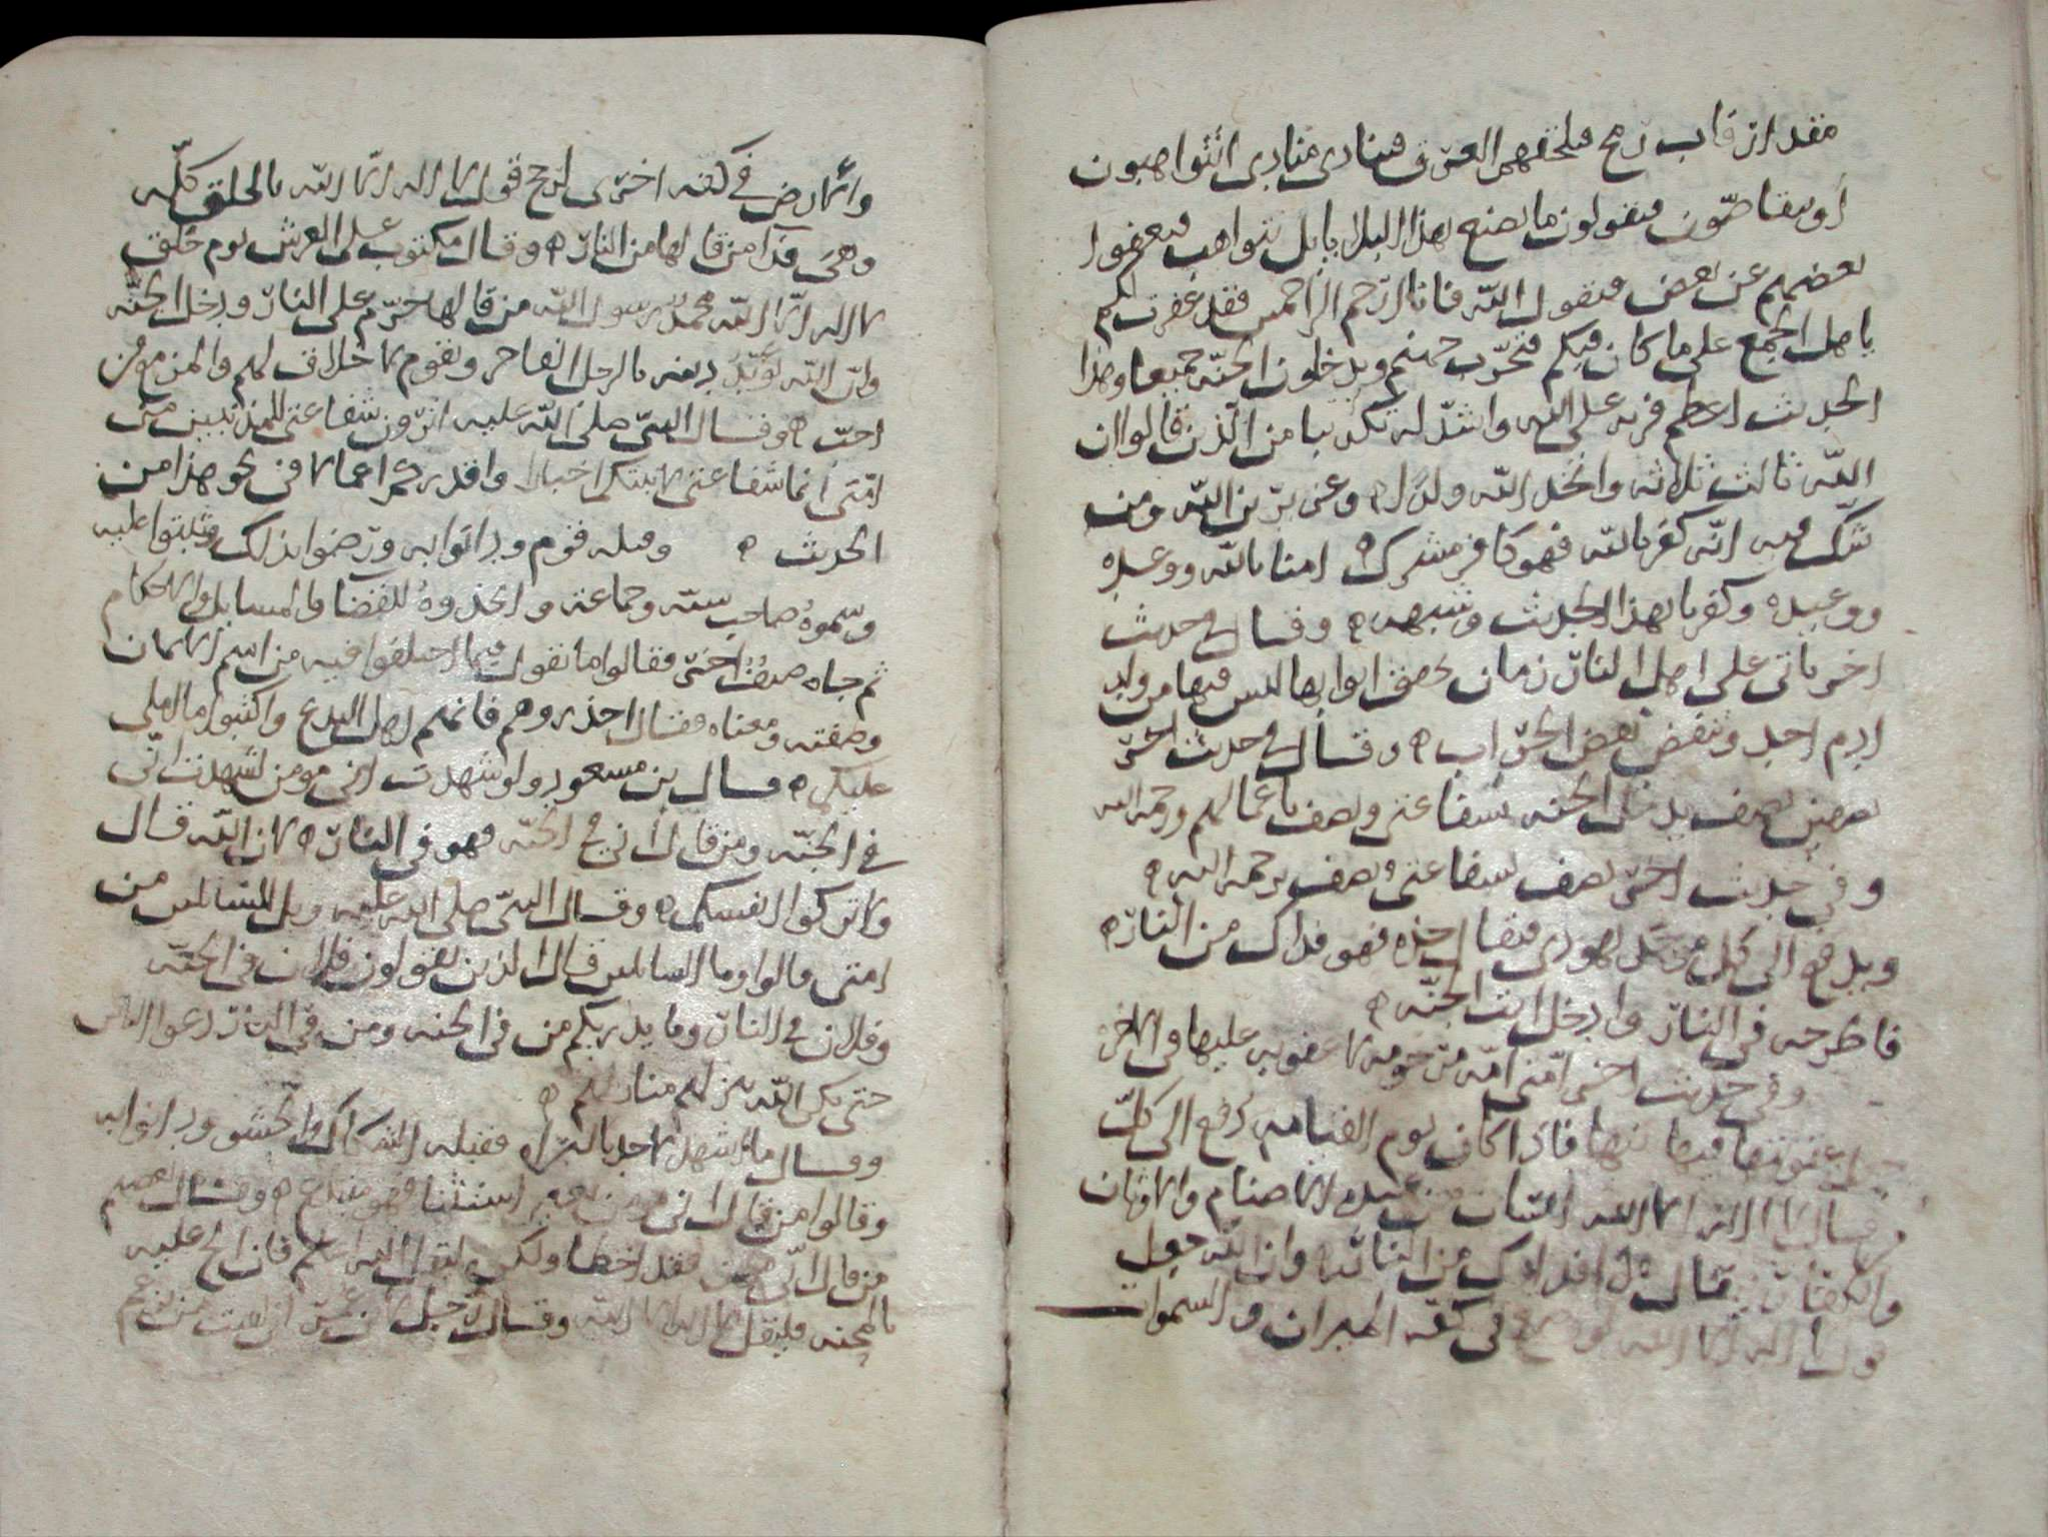 مقدار قاب رمح فيلحقهم العرق فينادي منادي اتتواهبون
أو تتقاصون فيقولون ما نصنع بهذا البلا يا بل نتواهب فيعفوا
بعضهم عن بعض فيقول الله فانا ارحم الراحمين فقد غفرت لكم
يا هل الجمع على ما كان فيكم فتخرب جهنم ويدخلون الجنة جميعا وهذا
الحديث اعظم فرية على الله واشد له تكذيبا من الذين قالوا ان
الله ثالث ثلاثة واتخذ الله ولدا وعزير بن الله ومن
شك فيه انه كفر بالله فهو كافر مشرك امنا بالله ووعده
ووعيده وكفرنا بهذا الحديث وشبهه وقال في حديث
اخر ياتي على اهل النار زمان تخفق ابوابها ليس فيها من ولد
ادم احد وتنقض بعض الخراب وقال في حديث اخر
نصفين نصف يدخل الجنة بشفاعتي ونصف باعمالهم ورحمة الله
وفي حديث اخر نصف بشفاعتي ونصف برحمة الله
ويدفع الى كل يهودي فيقال خذه فهو فداك من النار
فاطرحه في النار وادخل انت الجنة
وفي حديث اخر امتي امة مرحومة لا عقوبة عليها في الاخرة
عقوبتها فاذا كان يوم القيامة دفع الى كل
الله من عبدة الاصنام والاوثان
قال من النار وان الله جعل
قول لا اله الا الله في كفة الميزان والسموات
والارض في كفة اخرى لرجح قول لا اله الا الله بالخلق كله
وهي فدا من قالها من النار وقال مكتوب على العرش يوم خلق
لا اله الا الله محمد رسول الله من قالها حرم على النار ودخل الجنة
وان الله يؤيد دينه بالرجل الفاجر وبقوم لا خلاق لهم والمزمور
احب وقال النبي صلى الله عليه اترون شفاعتي للمذنبين من
امتي انما شفاعتي واقدركم اعمالا في نحو هذا من
الحديث وقبله قوم ودانوا به ورضوا بذلك وثبتوا عليه
وسموه صاحب سنة وجماعة واتخذوه للقضا والمسايل والاحكام
ثم جاه صنف اخر فقالوا ما تقول فيما اختلفوا فيه من اسم الايمان
وصفته ومعناه فقال احذروهم فانهم اهل البدع واكتبوا ما املي
عليكم قال بن مسعود ولو شهدت اني مومن لشهدت اني
في الجنة ومن قال اني في الجنة فهو في النار لان الله قال
ولا تزكوا انفسكم وقال النبي صلى الله عليه ويل للمتالين من
امتي قالوا وما المتالين قال الذين يقولون فلان في الجنة
وفلان في النار وما يدريكم من في الجنة ومن في النار دعوا الناس
حتى يكن الله ينزلهم منازلهم
وقال ما اشهد لاحد بالبراة فقبله الشكاك والحشو ودانوا به
وقالوا من قال اني مومن بغير استثنا فهو مبتدع وقال بعضهم
من قال اني مومن فقد اخطا ولكن ليقل الله اعلم فان الح عليه
بالمحنة فليقل لا اله الا الله وقال رجل